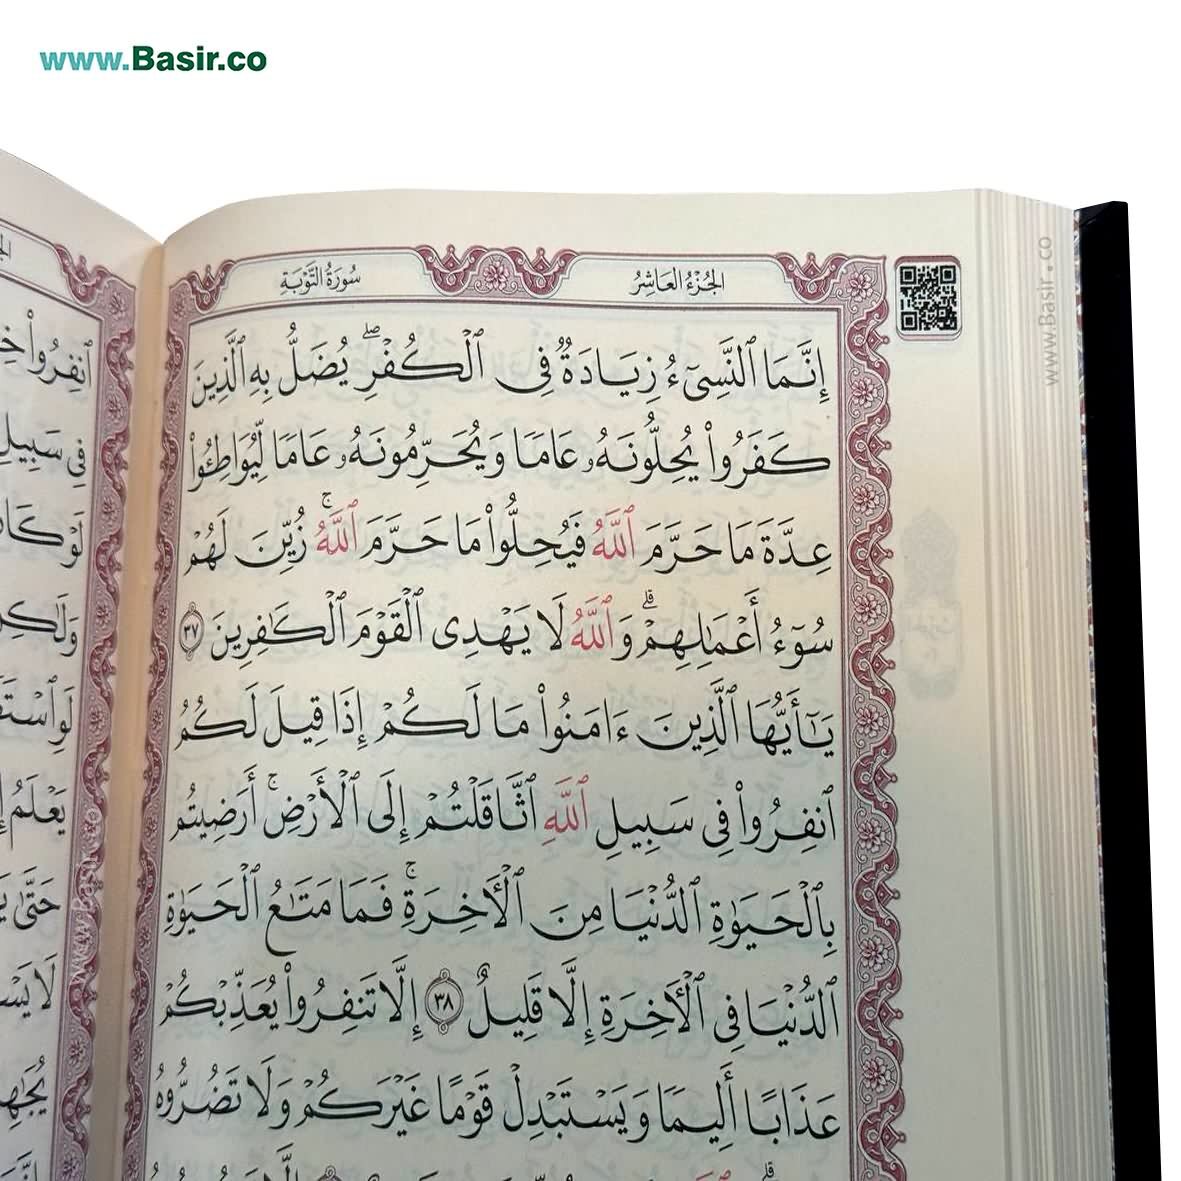 www.Basir.co
الجُزْءُ العَاشِرُ
سُورَةُ التَّوْبَةِ
إِنَّمَا ٱلنَّسِىٓءُ زِيَادَةٌ فِى ٱلْكُفْرِ ۖ يُضَلُّ بِهِ ٱلَّذِينَ
كَفَرُوا۟ يُحِلُّونَهُۥ عَامًا وَيُحَرِّمُونَهُۥ عَامًا لِّيُوَاطِـُٔوا۟
عِدَّةَ مَا حَرَّمَ ٱللَّهُ فَيُحِلُّوا۟ مَا حَرَّمَ ٱللَّهُ ۚ زُيِّنَ لَهُمْ
سُوٓءُ أَعْمَـٰلِهِمْ ۗ وَٱللَّهُ لَا يَهْدِى ٱلْقَوْمَ ٱلْكَـٰفِرِينَ ٣٧
يَـٰٓأَيُّهَا ٱلَّذِينَ ءَامَنُوا۟ مَا لَكُمْ إِذَا قِيلَ لَكُمُ
ٱنفِرُوا۟ فِى سَبِيلِ ٱللَّهِ ٱثَّاقَلْتُمْ إِلَى ٱلْأَرْضِ ۚ أَرَضِيتُم
بِٱلْحَيَوٰةِ ٱلدُّنْيَا مِنَ ٱلْـَٔاخِرَةِ ۚ فَمَا مَتَـٰعُ ٱلْحَيَوٰةِ
ٱلدُّنْيَا فِى ٱلْـَٔاخِرَةِ إِلَّا قَلِيلٌ ٣٨ إِلَّا تَنفِرُوا۟ يُعَذِّبْكُمْ
عَذَابًا أَلِيمًا وَيَسْتَبْدِلْ قَوْمًا غَيْرَكُمْ وَلَا تَضُرُّوهُ
www.Basir.co
ٱنفِرُوا۟
فِى سَبِيلِ
لَوْ
وَلَـٰكِن
يَعْلَمُ
حَتَّىٰ
لَا